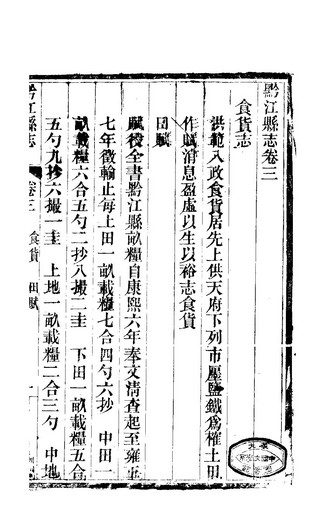 黔江縣志卷三
食貨志
洪範八政食貨居先上供天府下列市廛鹽鐵爲榷土田
作賦消息盈虛以生以裕志食貨
田賦
賦役全書黔江縣畝糧自康熙六年奉文清查起至雍正
七年徵輸止每上田一畝載糧七合四勺六抄 中田一
畝載糧六合五勺二抄八撮二圭 下田一畝載糧五合
五勺九抄六撮一圭 上地一畝載糧二合三勺 中地
黔江縣志 卷三 食貨 田賦 一